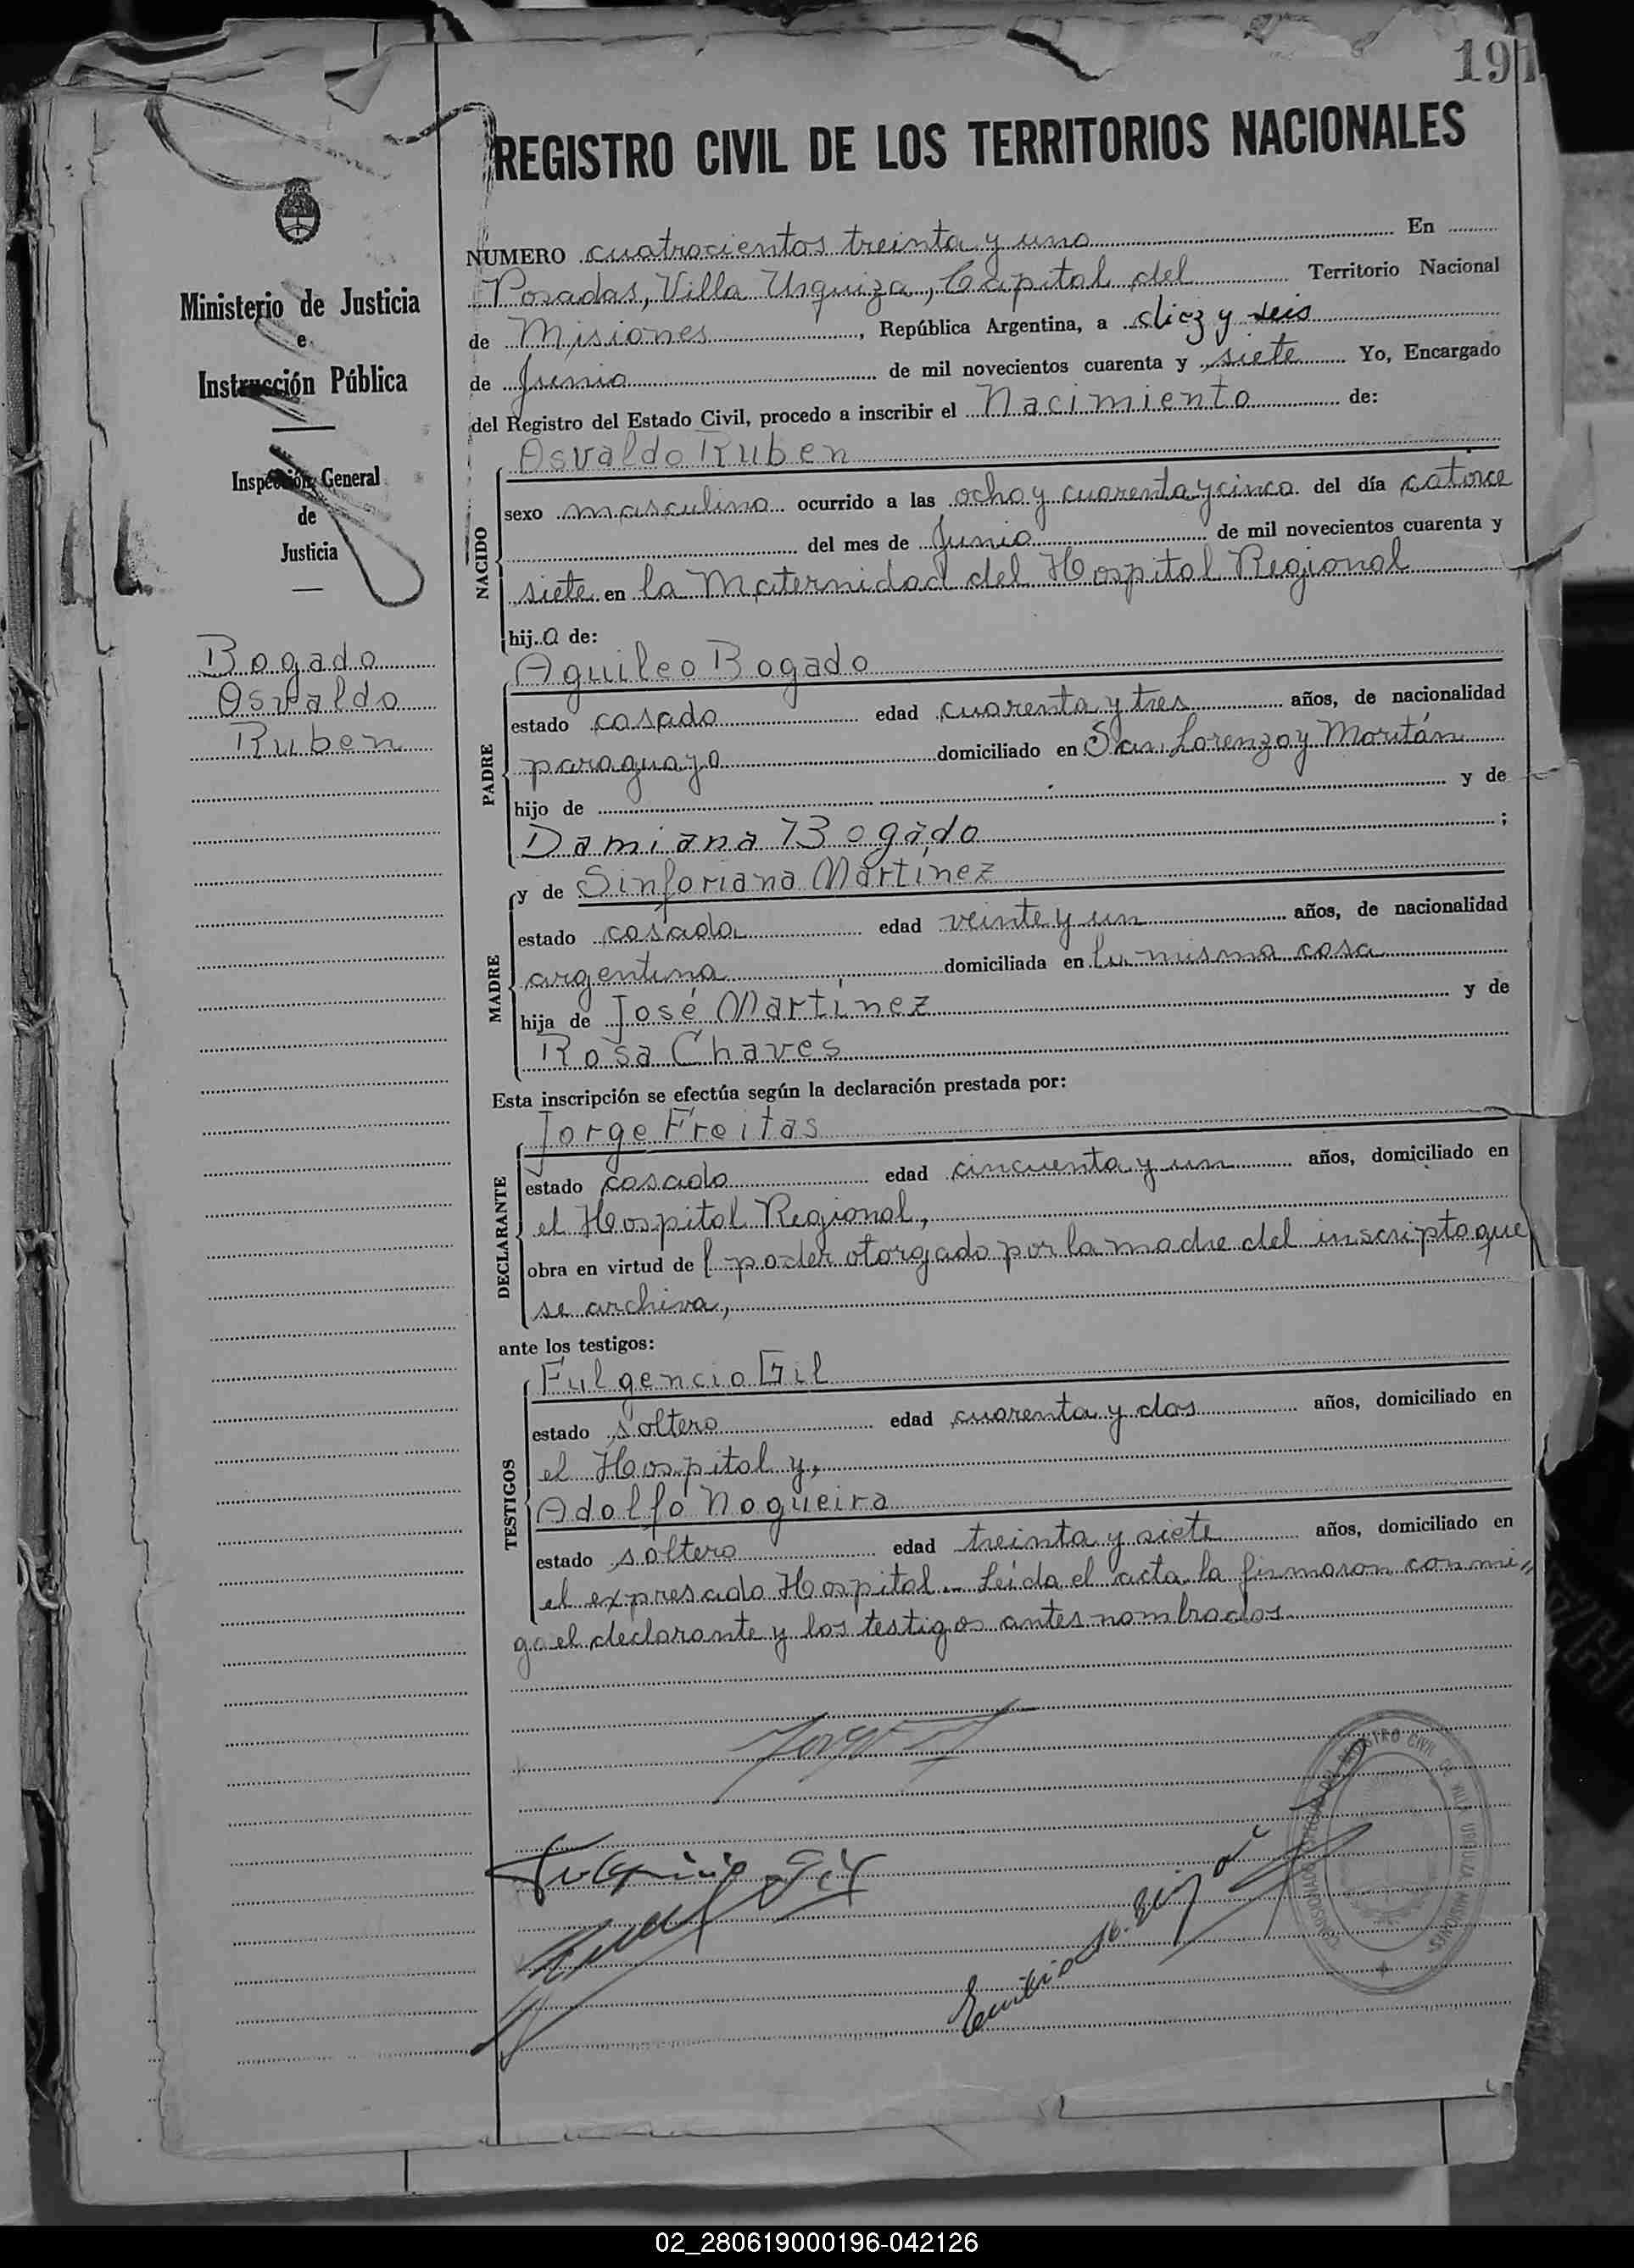 191
REGISTRO CIVIL DE LOS TERRITORIOS NACIONALES
Ministerio de Justicia
e
Instrucción Pública
Inspección General
de
Justicia
Bogado
Osvaldo
Ruben
NUMERO cuatrocientos treinta y uno En
Posadas, Villa Urquiza, Capital del Territorio Nacional
de Misiones, República Argentina, a diez y seis
de Junio de mil novecientos cuarenta y siete Yo, Encargado
del Registro del Estado Civil, procedo a inscribir el Nacimiento de:
NACIDO
Osvaldo Ruben
sexo masculino ocurrido a las ocho y cuarenta y cinco del día catorce
del mes de Junio de mil novecientos cuarenta y
siete en la Maternidad del Hospital Regional
hijo de:
PADRE
Aguileo Bogado
estado casado edad cuarenta y tres años, de nacionalidad
paraguaya domiciliado en San Lorenzo y Moritán
hijo de y de
Damiana Bogado ;
MADRE
y de Sinforiana Martínez
estado casada edad veinte y un años, de nacionalidad
argentina domiciliada en la misma casa
hija de José Martínez y de
Rosa Chaves
Esta inscripción se efectúa según la declaración prestada por:
DECLARANTE
Jorge Freitas
estado casado edad cincuenta y un años, domiciliado en
el Hospital Regional,
obra en virtud de l poder otorgado por la madre del inscripto que
se archiva,
ante los testigos:
TESTIGOS
Fulgencio Gil
estado soltero edad cuarenta y dos años, domiciliado en
el Hospital y,
Adolfo Nogueira
estado soltero edad treinta y siete años, domiciliado en
el expresado Hospital.- Leída el acta la firmaron conmi"
go el declarante y los testigos antes nombrados
Fulgencio Gil
REGISTRO CIVIL DE VILLA URQUIZA MISIONES
02_280619000196-042126